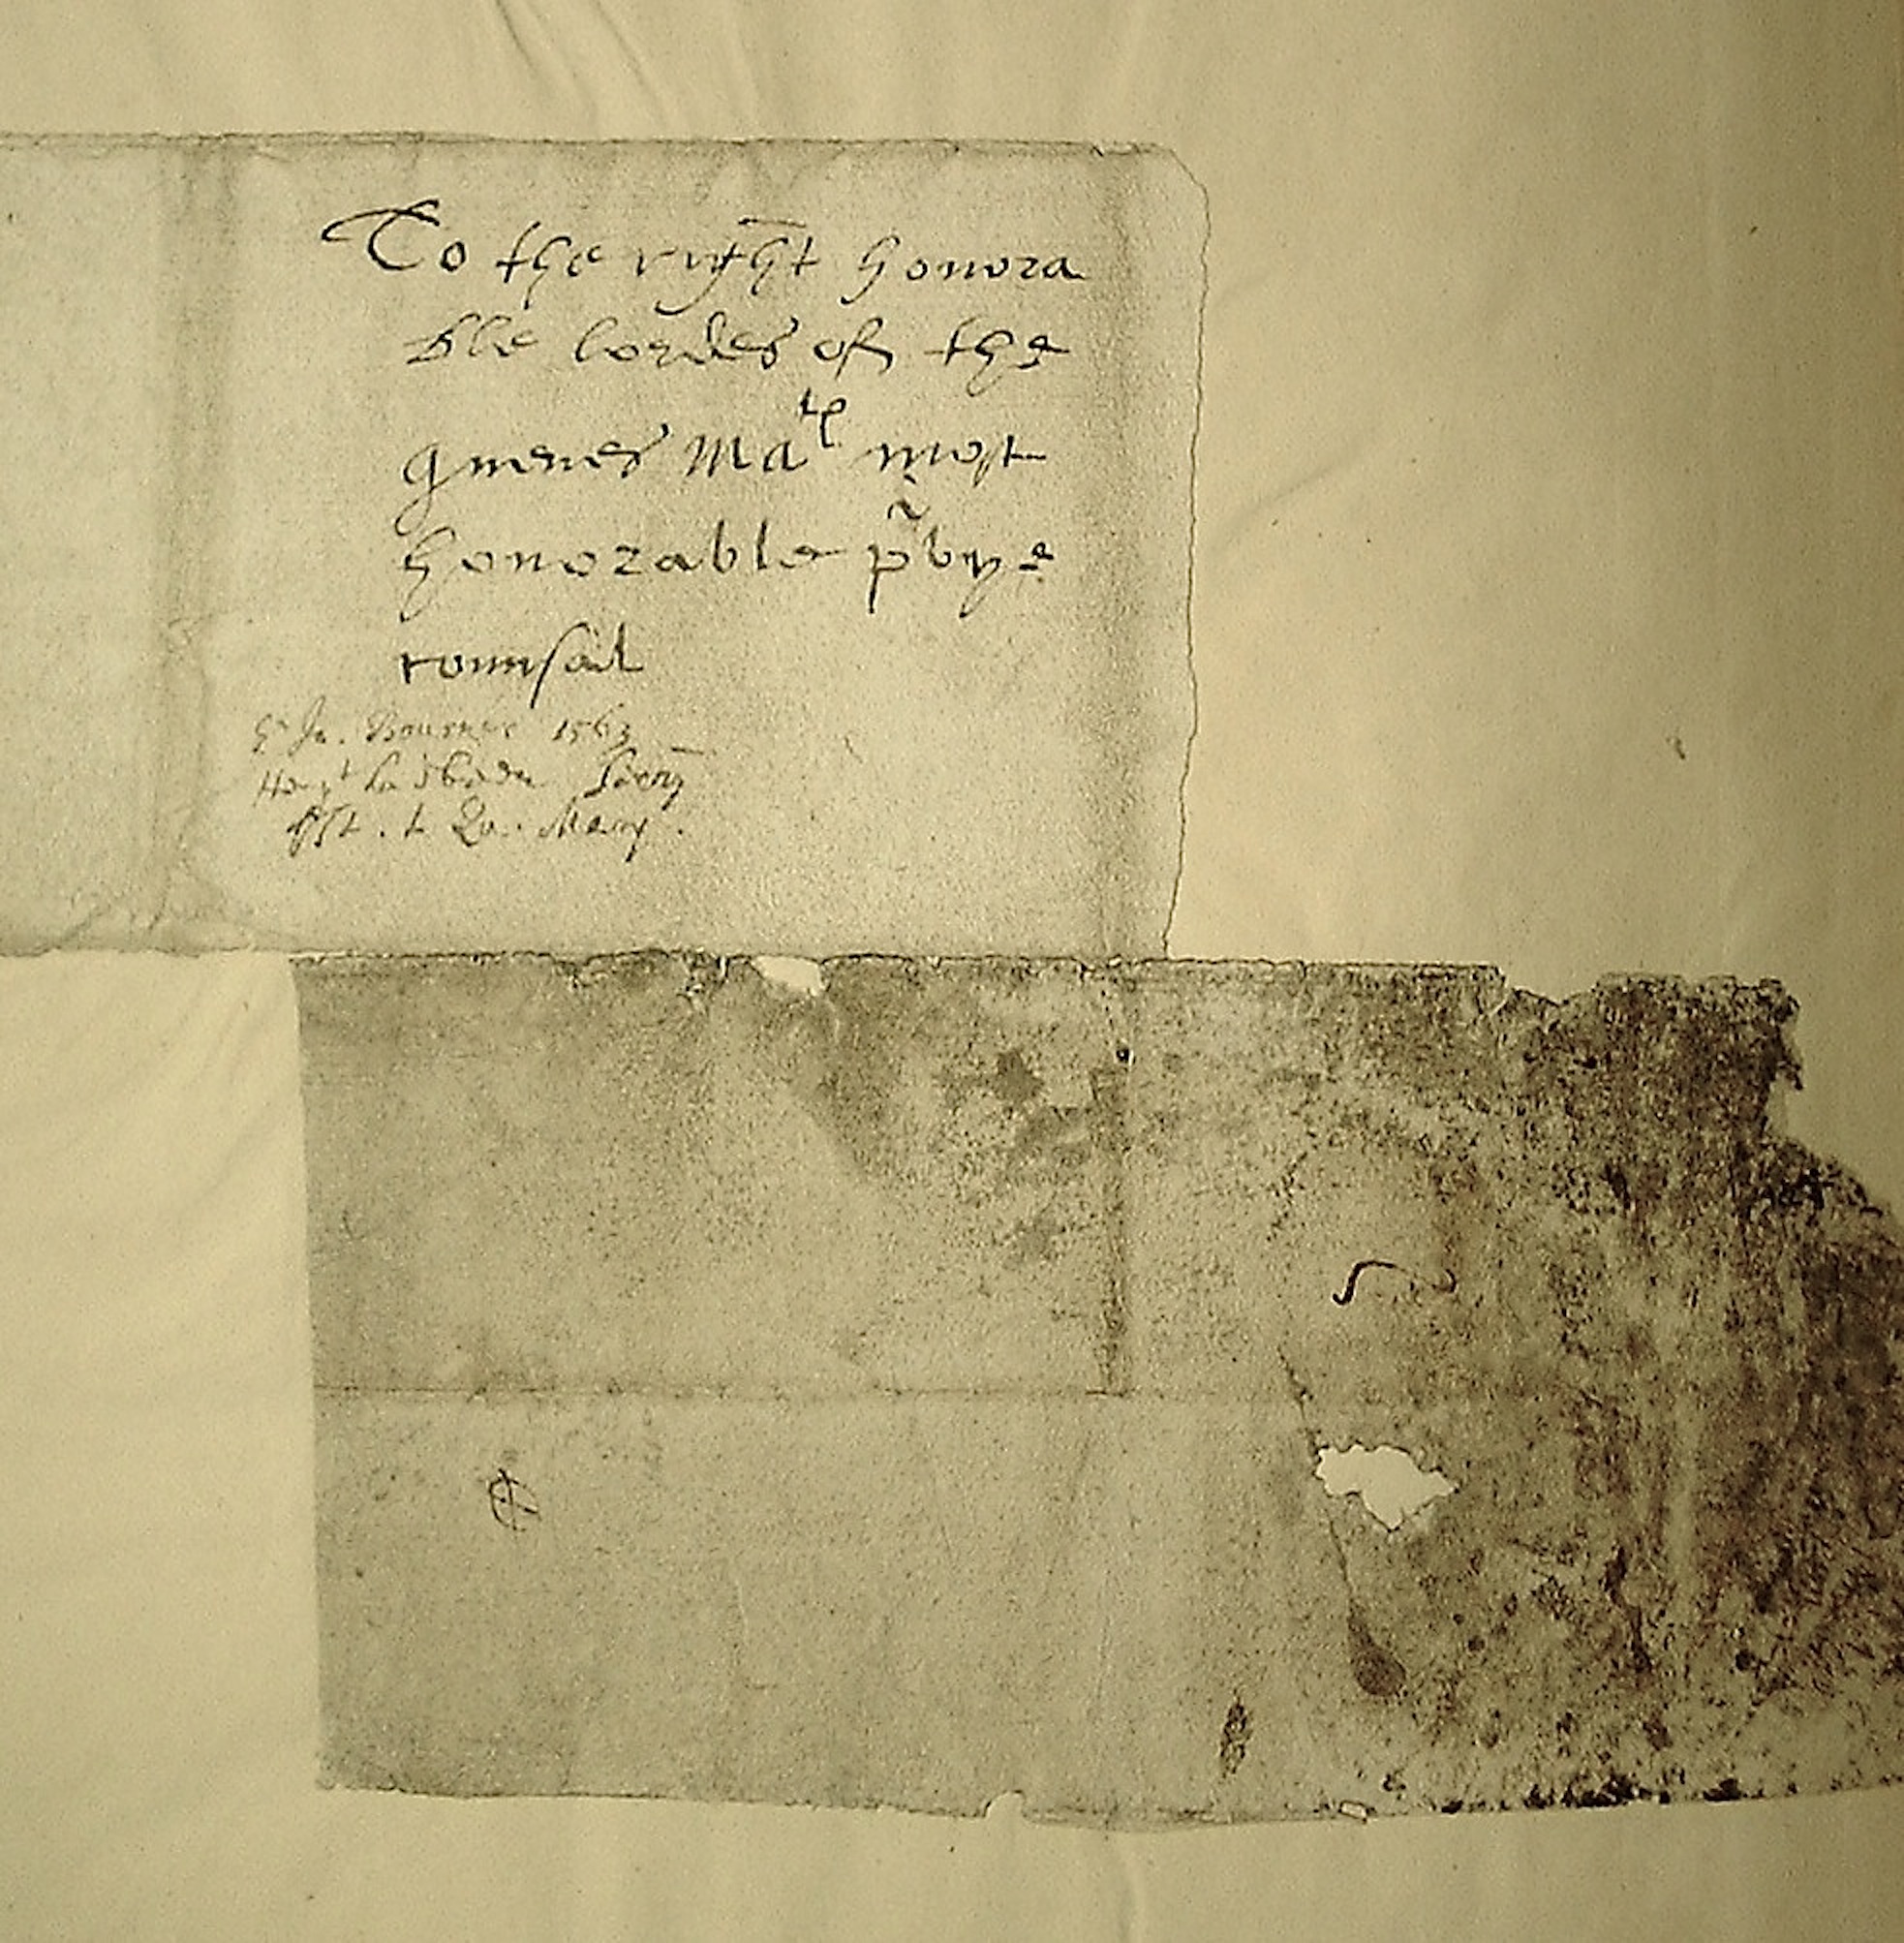 To the right honora
ble lordes of the
quenes Matie most
honorable prvye
counsail
Sr Jo. Bourne 1563
Secry
to Qu. Mary.